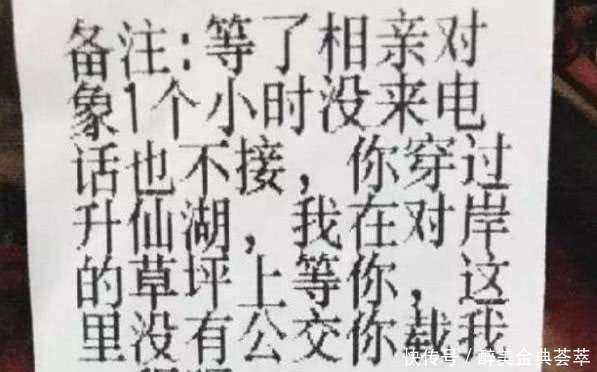 备注:等了相亲对
象1个小时没来电
话也不接,你穿过
升仙湖,我在对岸
的草坪上等你,这
里没有公交你载我
快传号/醉美金典荟萃